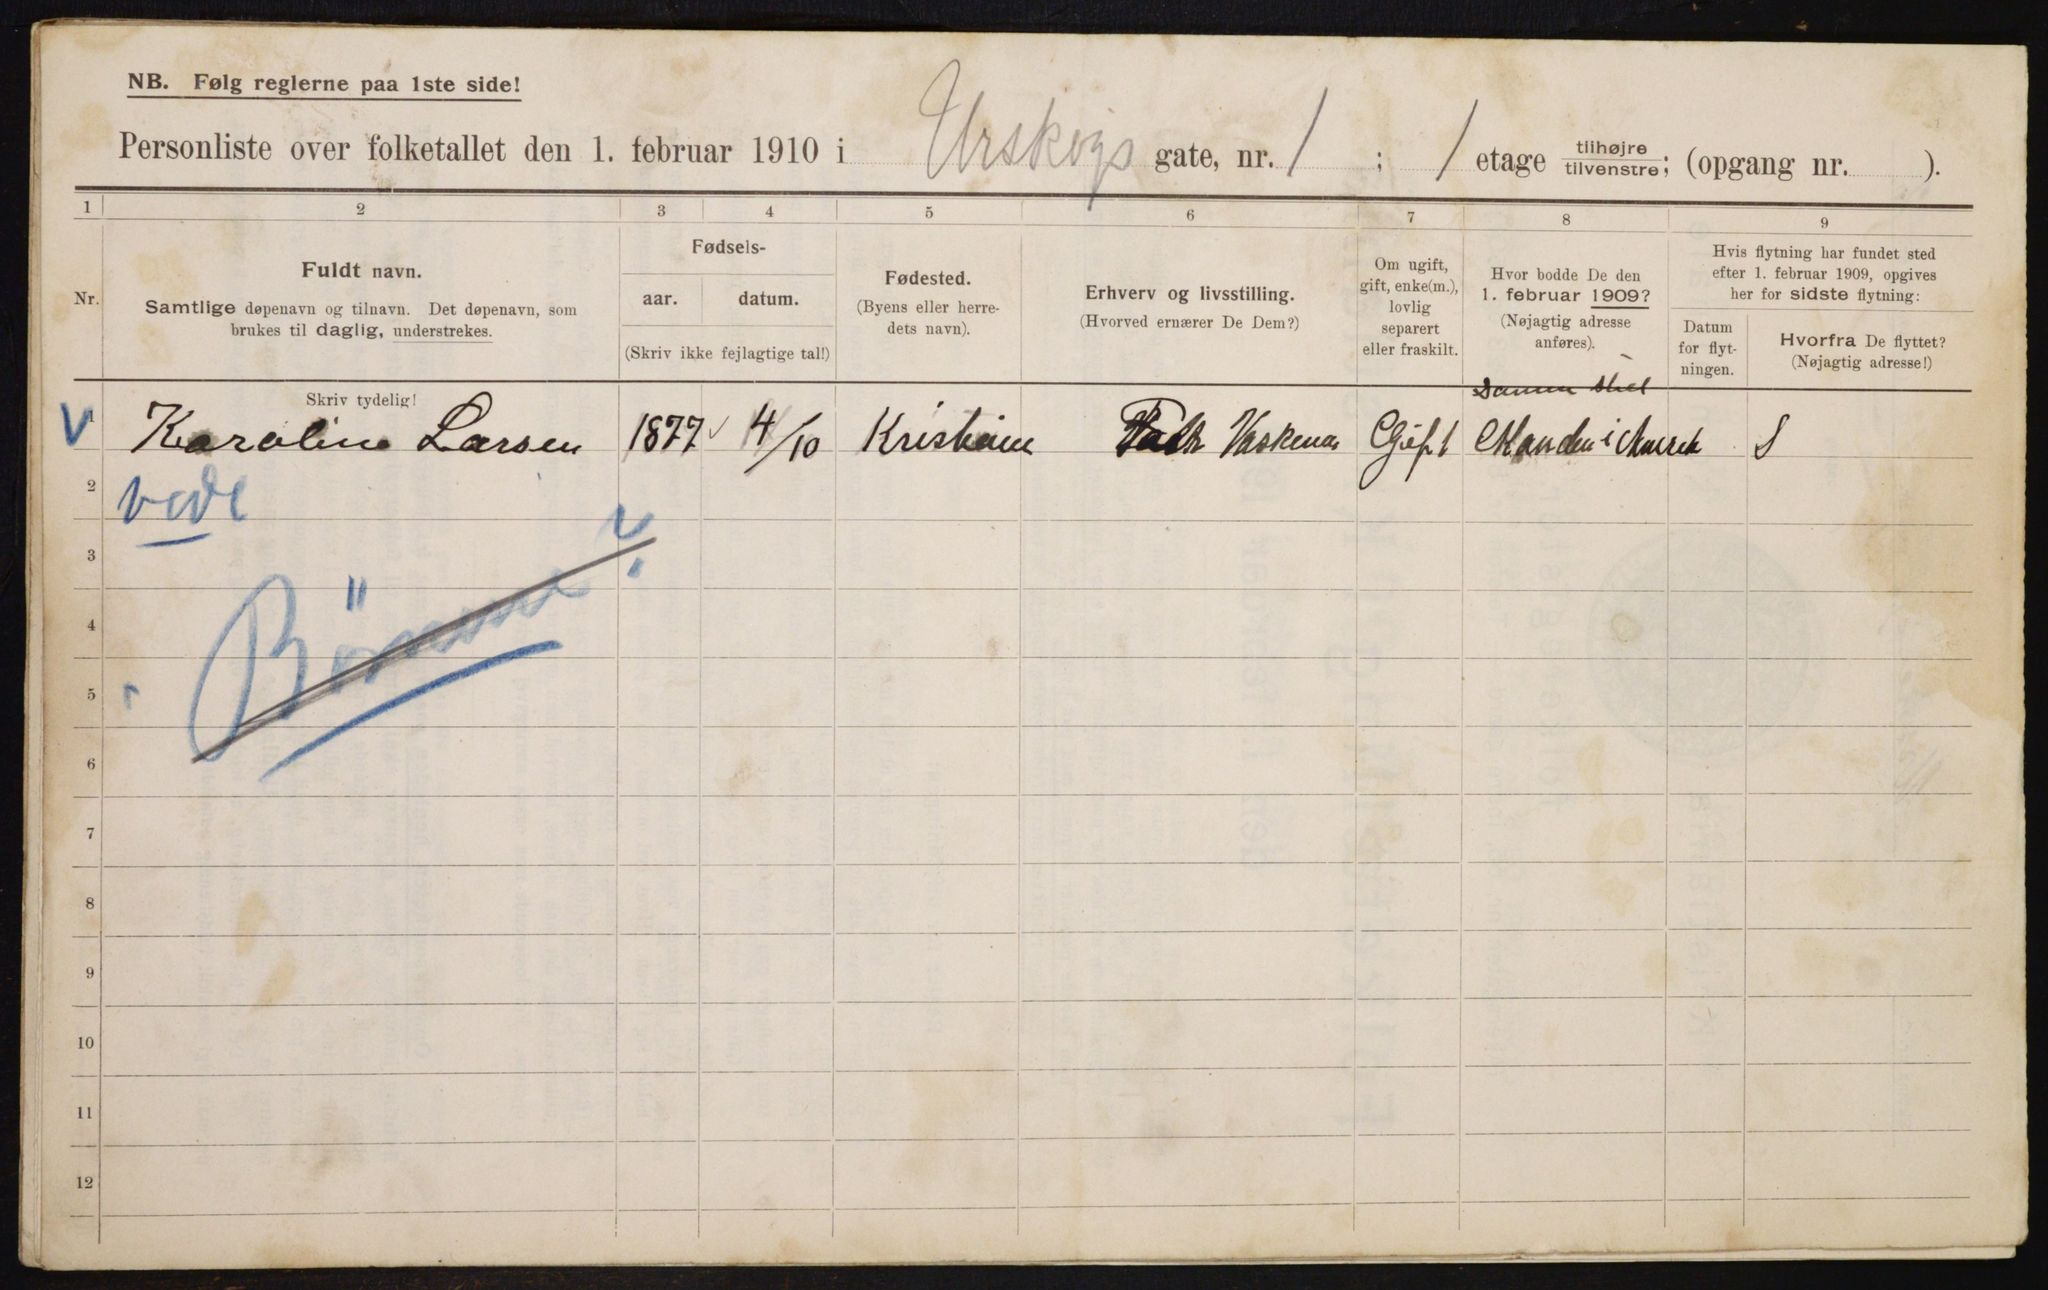 NB. Følg reglerne paa 1ste side!
Personliste over folketallet den 1. februar 1910 i Urskogs gate, nr. 1 ; 1 etage tilhøjre/tilvenstre; (opgang nr. ).
1 2 3 4 5 6 7 8 9
Nr.
Fuldt navn.
Samtlige døpenavn og tilnavn. Det døpenavn, som
brukes til daglig, understrekes.
Fødsels-
aar. datum.
(Skriv ikke fejlagtige tal!)
Fødested.
(Byens eller herre-
dets navn).
Erhverv og livsstilling.
(Hvorved ernærer De Dem?)
Om ugift,
gift, enke(m.),
lovlig
separert
eller fraskilt.
Hvor bodde De den
1. februar 1909?
(Nøjagtig adresse
anføres).
Hvis flytning har fundet sted
efter 1. februar 1909, opgives
her for sidste flytning:
Datum
for flyt-
ningen.
Hvorfra De flyttet?
(Nøjagtig adresse!)
Skriv tydelig!
Samme sted
V 1 Karoline Larsen 1877 4/10 Kristiania Gift Manden i S
2
vede
3
4
Børnene?
5
6
7
8
9
10
11
12